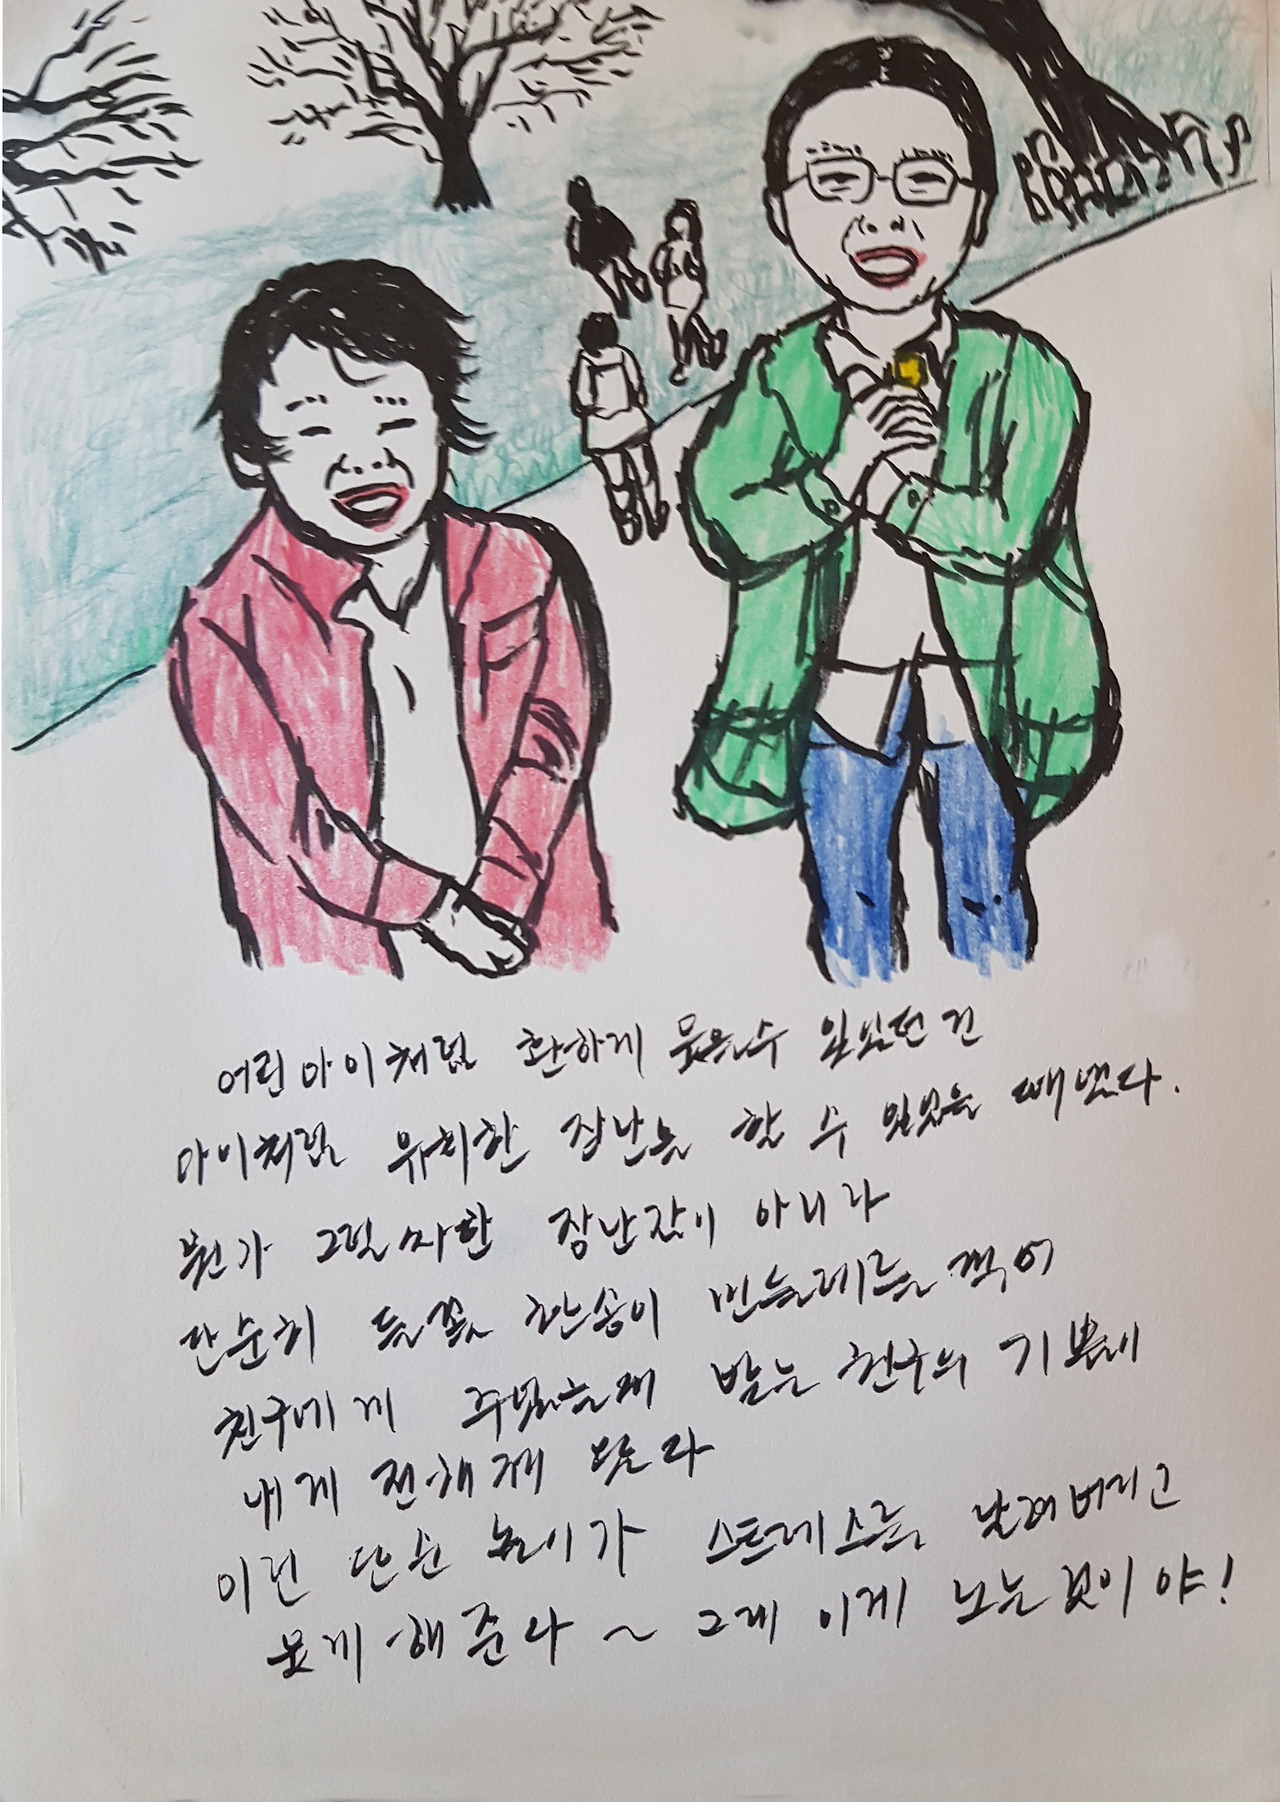 어린아이처럼 환하게 웃을수 있었던 건
아이처럼 유치한 장난을 할 수 있었을 때였다.
뭔가 그럴싸한 장난감이 아니라
단순히 들꽃 한송이 민들레를 꺽어
친구에게 주었는데 받는 친구의 기쁨이
내게 전해져 왔다
이런 단순 놀이가 스트레스를 날려버리고
웃게 해준다 ~ 그래 이게 노는것이야!